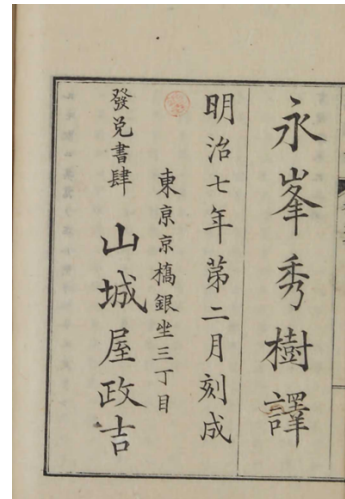 永峯秀樹譯
明治七年第二月刻成
東亰京橋銀坐三丁目
發兌書肆 山城屋政吉